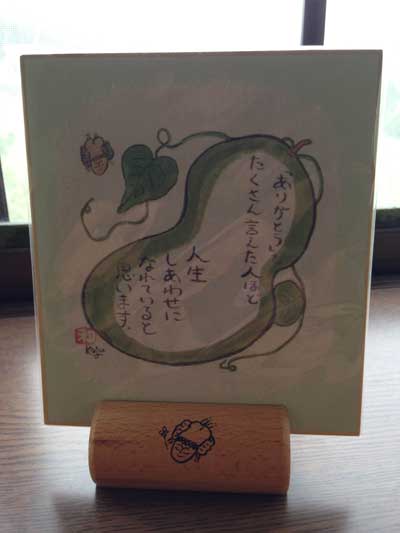 「ありがとう」
たくさん言えた人ほど
人生
しあわせに
なれていると
思います。
和